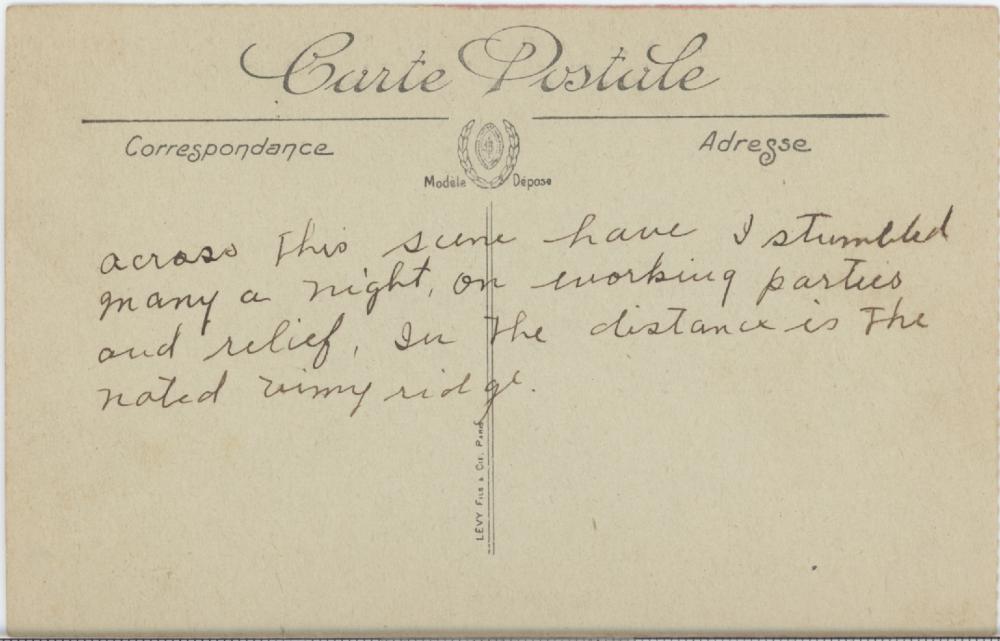 Carte Postale
Correspondance
Adresse
Modèle Déposé
across this scene have I stumbled
many a night, on working parties
and relief, In the distance is the
noted vimy ridge.
LEVY FILS & CIE. PARIS